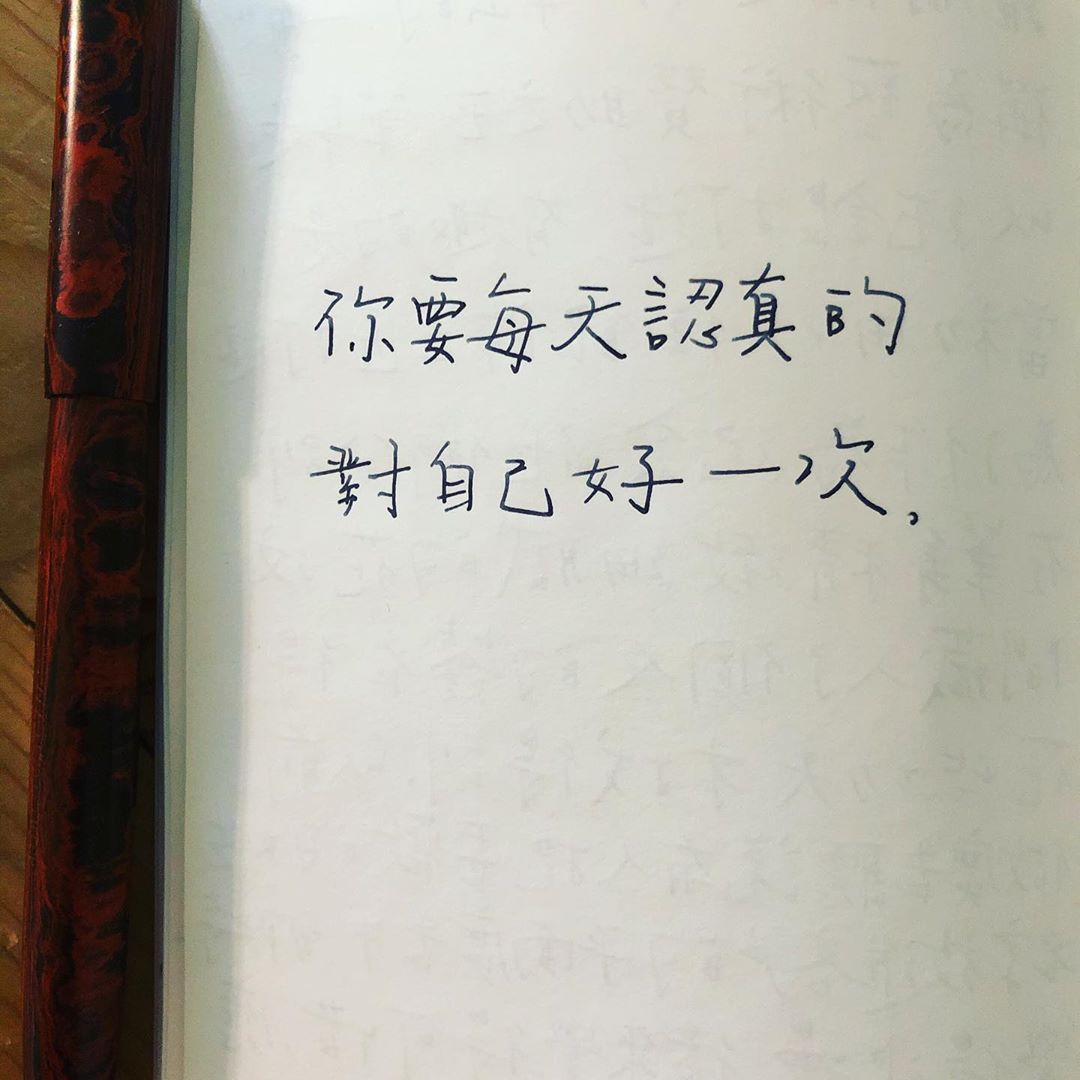 你要每天認真的
對自己好一次,